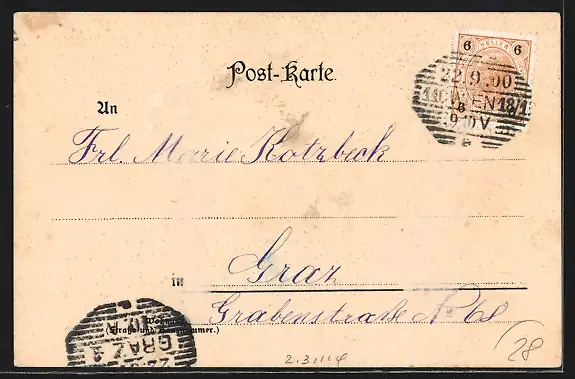 6 HELLER 6
22.9.00
WIEN 18/1
9 10 V
Post-Karte.
An
Frl. Marie Kotzbeck
in Graz
Grabenstraße № 68
(Straße und Hausnummer.)
GRAZ 1
22.9
2.3.114
28